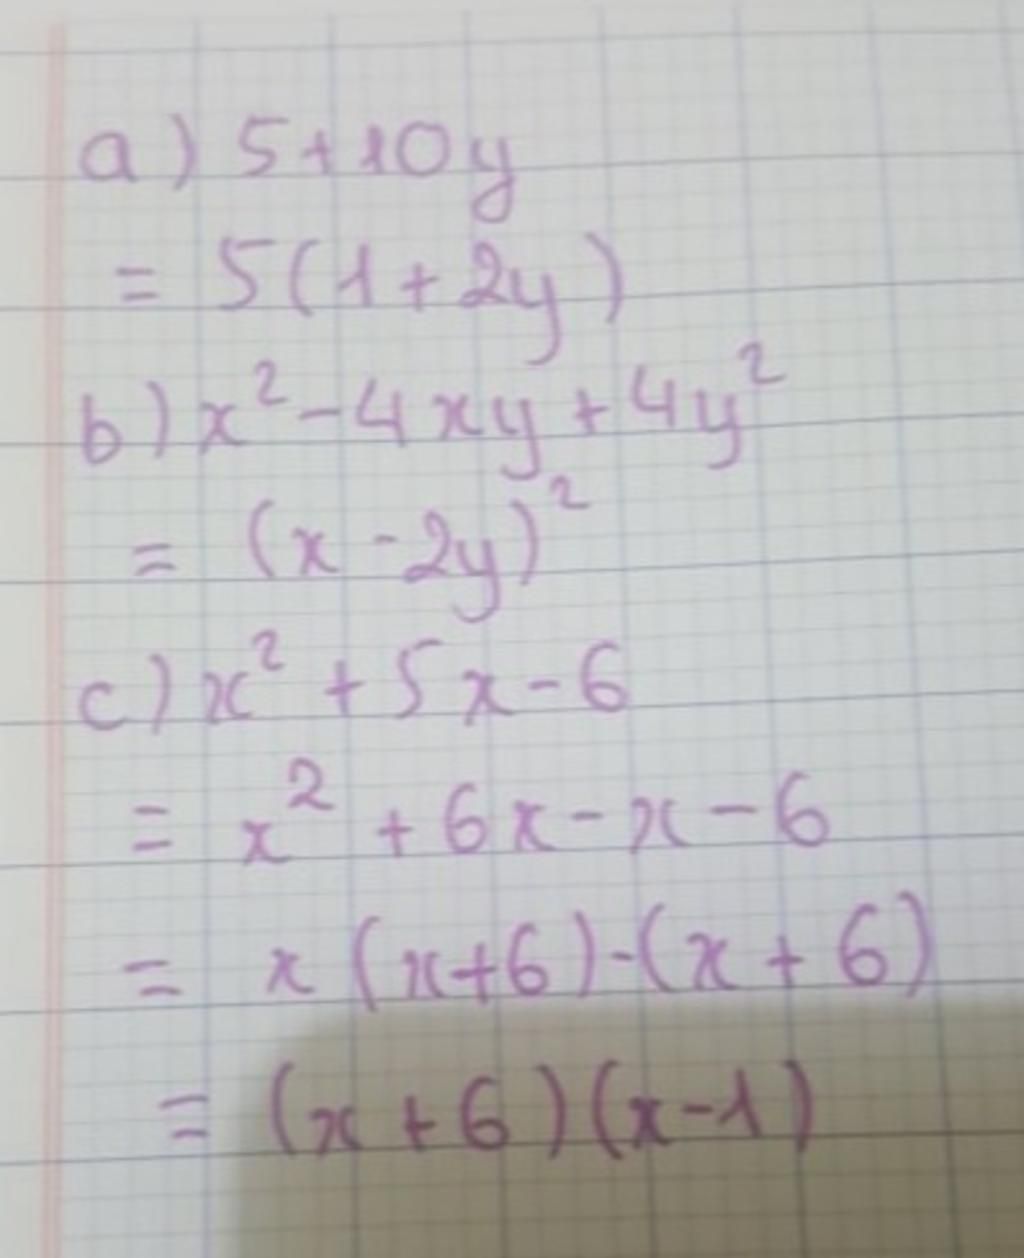 a) 5+10y
= 5(1+2y)
b) x² - 4xy + 4y²
= (x - 2y)²
c) x² + 5x - 6
= x² + 6x - x - 6
= x(x+6)-(x+6)
= (x+6)(x-1)